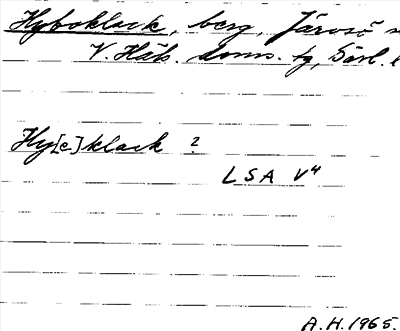 Hyboklack, berg, Järvsö
V. Häls. doms. tg, Gävl. l
Hy[e]klack ?
LSA V4
A.H. 1965.